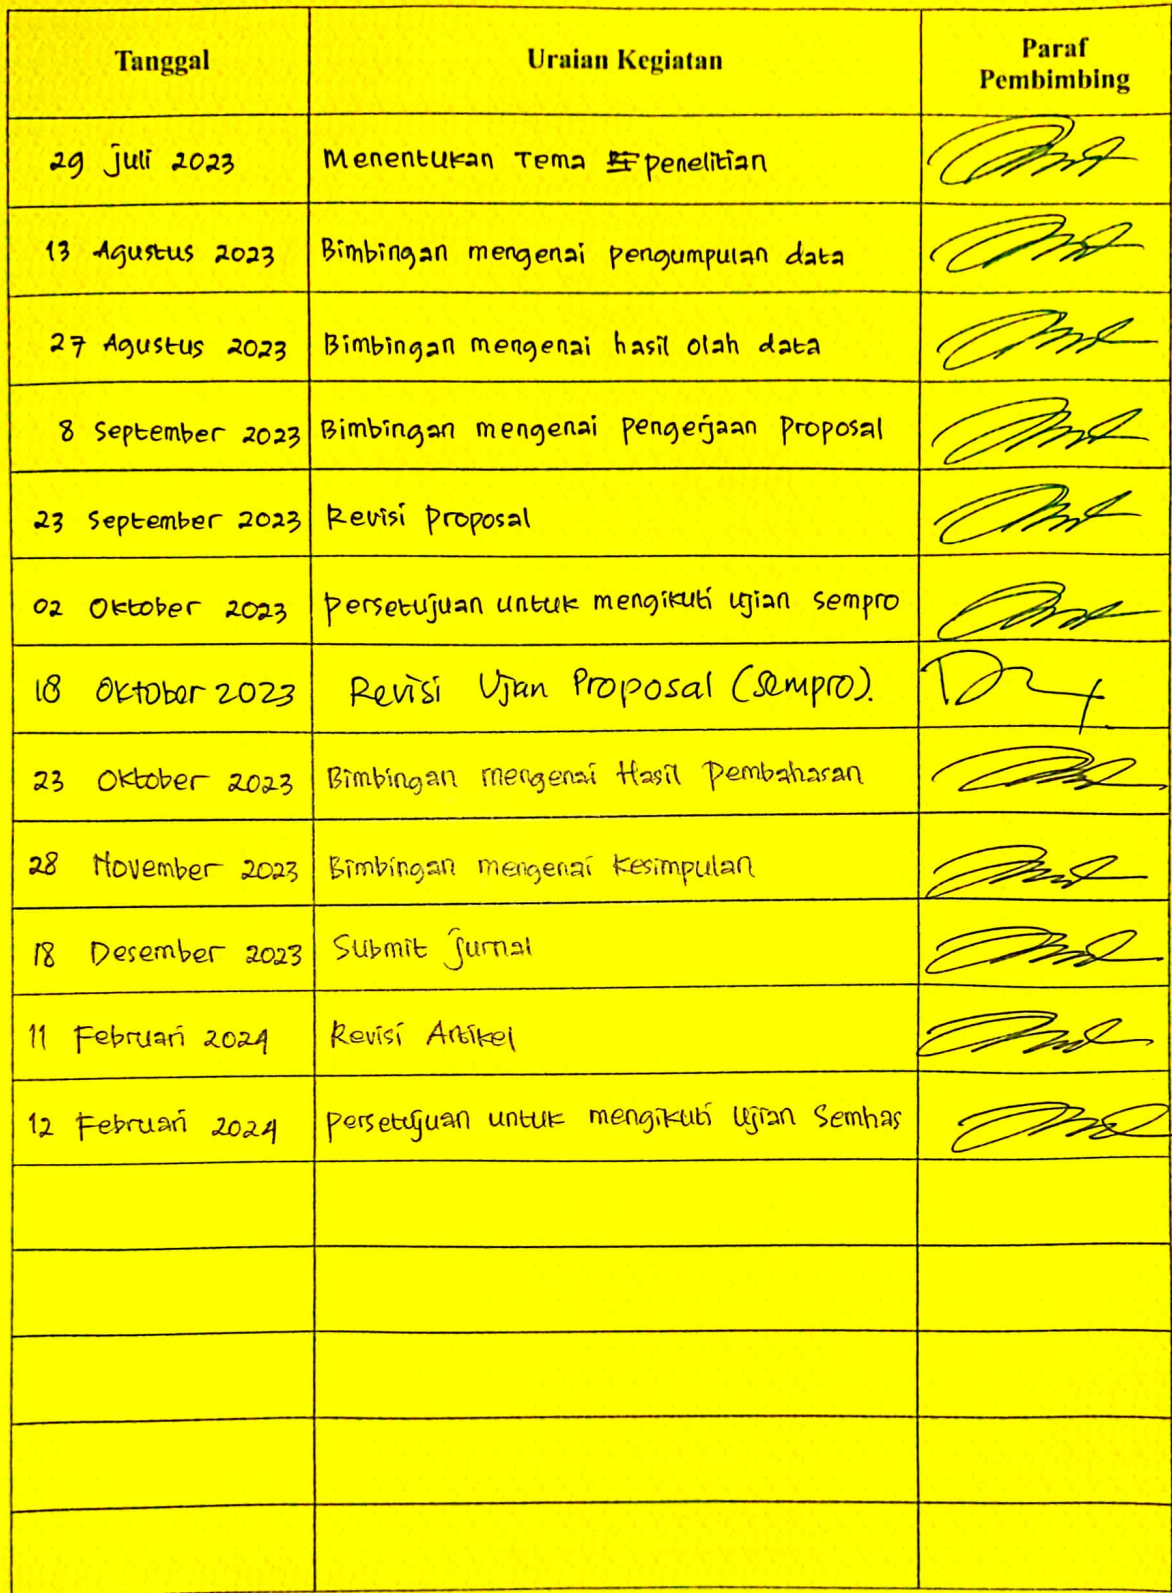 Tanggal
Uraian Kegiatan
Paraf
Pembimbing
29 Juli 2023 Menentukan Tema penelitian
13 Agustus 2023 Bimbingan mengenai pengumpulan data
27 Agustus 2023 Bimbingan mengenai hasil olah data
8 September 2023 Bimbingan mengenai pengerjaan proposal
23 September 2023 Revisi proposal
02 Oktober 2023 persetujuan untuk mengikuti ujian sempro
18 Oktober 2023 Revisi Ujan Proposal (Sempro).
23 Oktober 2023 Bimbingan mengenai Hasil Pembahasan
28 November 2023 Bimbingan mengenai kesimpulan
18 Desember 2023 Submit Jurnal
11 Februari 2024 Revisi Artikel
12 Februari 2024 persetujuan untuk mengikuti Ujian Semhas